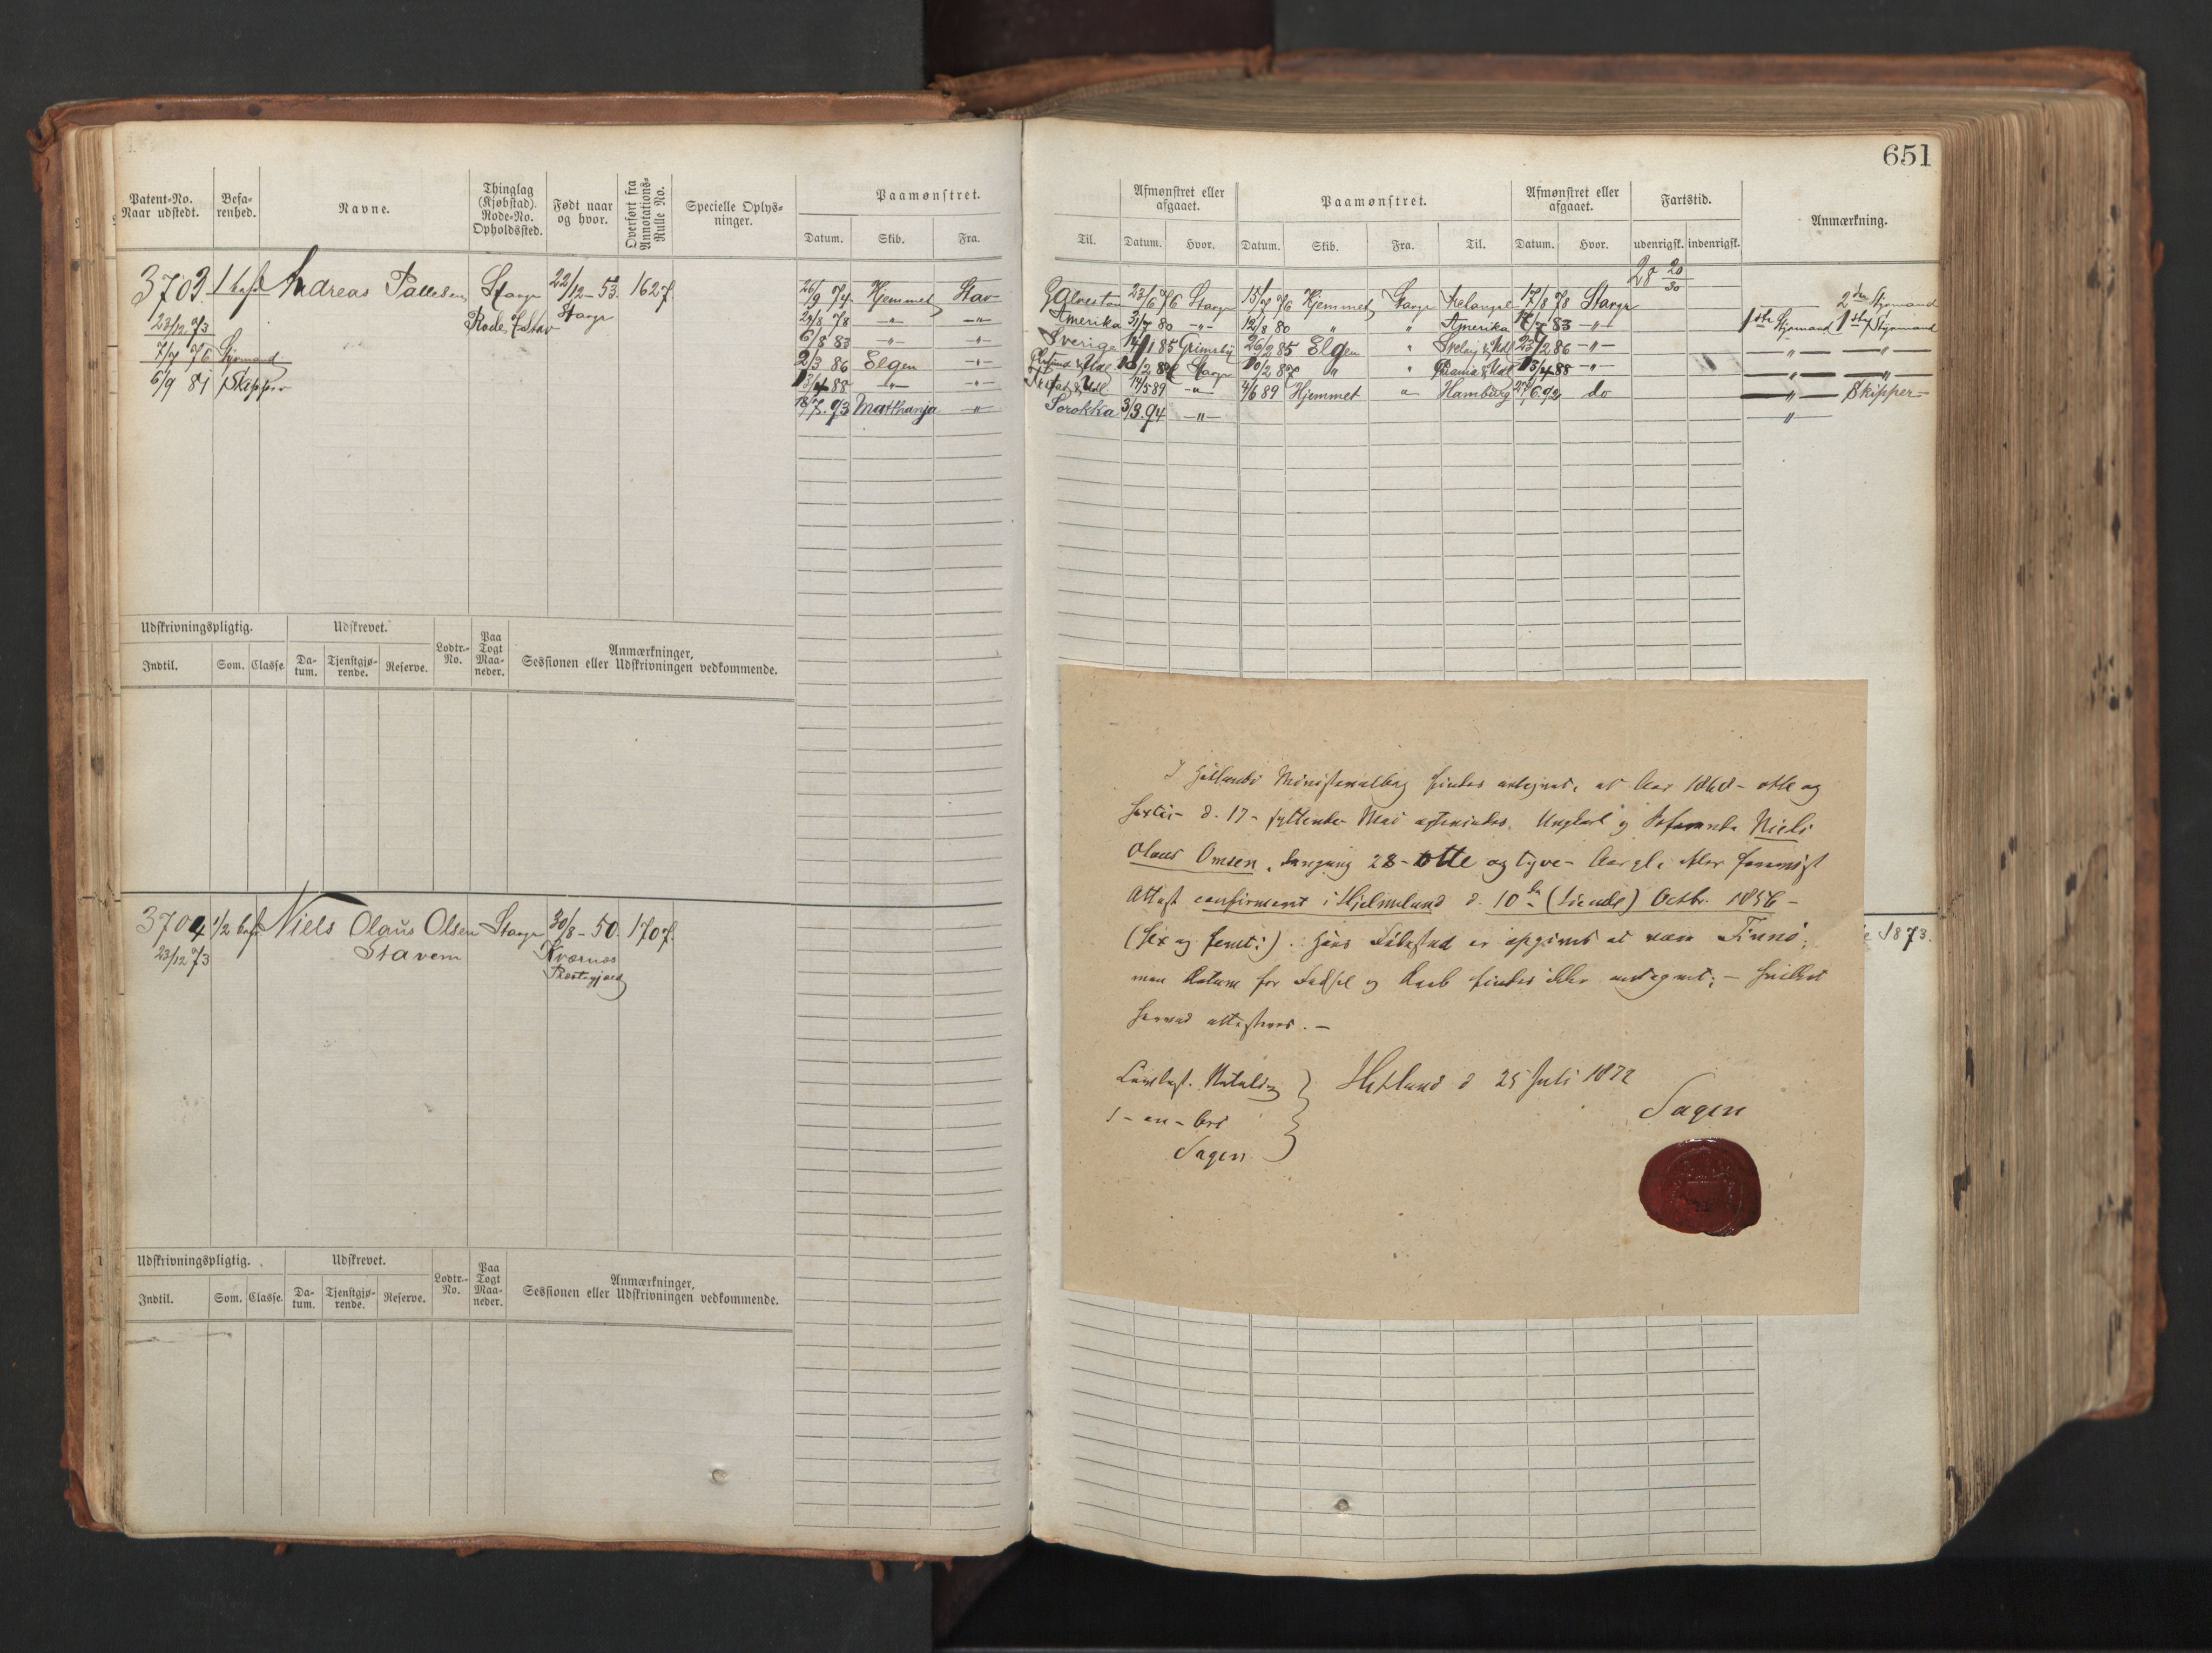 651
Patent-No. Naar udstedt.
Befarenhed.
Navne.
Thinglag (Kjøbstad). Rode-No. Opholdssted.
Født naar og hvor.
Overført fra Annotations-Rulle No.
Specielle Oplysninger.
Paamønstret.
Datum. Skib. Fra.
Til.
Afmønstret eller afgaaet.
Datum. Hvor.
Paamønstret.
Datum. Skib. Fra. Til.
Afmønstret eller afgaaet.
Datum. Hvor.
Fartstid.
udenrigsk. indenrigsk.
Anmærkning.
3703 1 bef Andreas Pallesen Stavgr 22/12-53. 1627.
23/12 73 Rode Stavgr
7/7 76 Styrmand
6/9 81 Skipper
28 20/30
26/9 74 Hjemmet Stav Galveston 23/6 76 Stavgr 15/7 76 Hjemmet Stavgr Archangel 17/8 78 Stavgr 2den Styrmand
29/8 78 -"- -"- Amerika 31/7 80 -"- 12/8 80 " " Amerika 17/7 83 -"- 1ste Styrmand 1ste Styrmand
6/8 83 -"- -"- Sverige 14/1 85 Grimsby 26/2 85 Elgen " 23/2 86 -"- -"- -"-
2/3 86 Elgen -"- 10/2 87 Stavgr 10/2 87 " " 13/4 88 -"- -"- -"-
13/4 88 -"- -"- 14/5 89 -"- 4/6 89 Hjemmet " Hamburg 27/6. 92 do -"- Skipper-
18/7. 93 Matthanja -"- Sorokka 3/3. 94 -"- "
Udskrivningspligtig. Udskrevet. Lodtr.-No. Paa Togt Maaneder. Anmærkninger, Sessionen eller Udskrivningen vedkommende.
Indtil. Som. Classe. Datum. Tjenstgjørende. Reserve.
3704 1/2 bef Niels Olaus Olsen Stavgr 30/8-50. 1707.
23/12 73 Stavem Kværnes
Præstegjæld
1873.
Udskrivningspligtig. Udskrevet. Lodtr.-No. Paa Togt Maaneder. Anmærkninger, Sessionen eller Udskrivningen vedkommende.
Indtil. Som. Classe. Datum. Tjenstgjørende. Reserve.
I Hetlands Ministerialbog findes antegnet, at Aar 1868 - otte og
sexti - d. 17 - syttende Mai Ungkarl og Niels
Olaus Omsen, 28 - otte og tyve - Aar gl, efter
Attest confirmeret i Hjelmeland d. 10de (tiende) Octbr. 1856 -
(sex og femti). Hans Fødested er opgivet at være Finnø;
men Datum for Fødsel og Daab findes ikke antegnet; - hvilket
herved attesteres. -
Hetland d 25 Juli 1872
Sagen
1 - en - Ort
Sagen